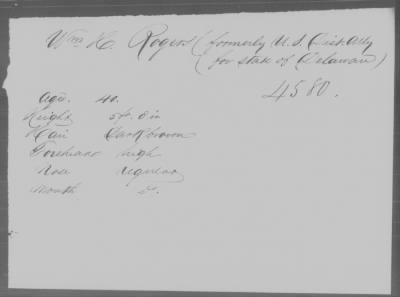 Wm H. Rogers (formerly U.S. Dist Atty
(for state of Delaware)
4580.
Age. 40.
Height 5 ft. 8 in
Hair Dark brown
Forehead high
Nose regular
Mouth do.